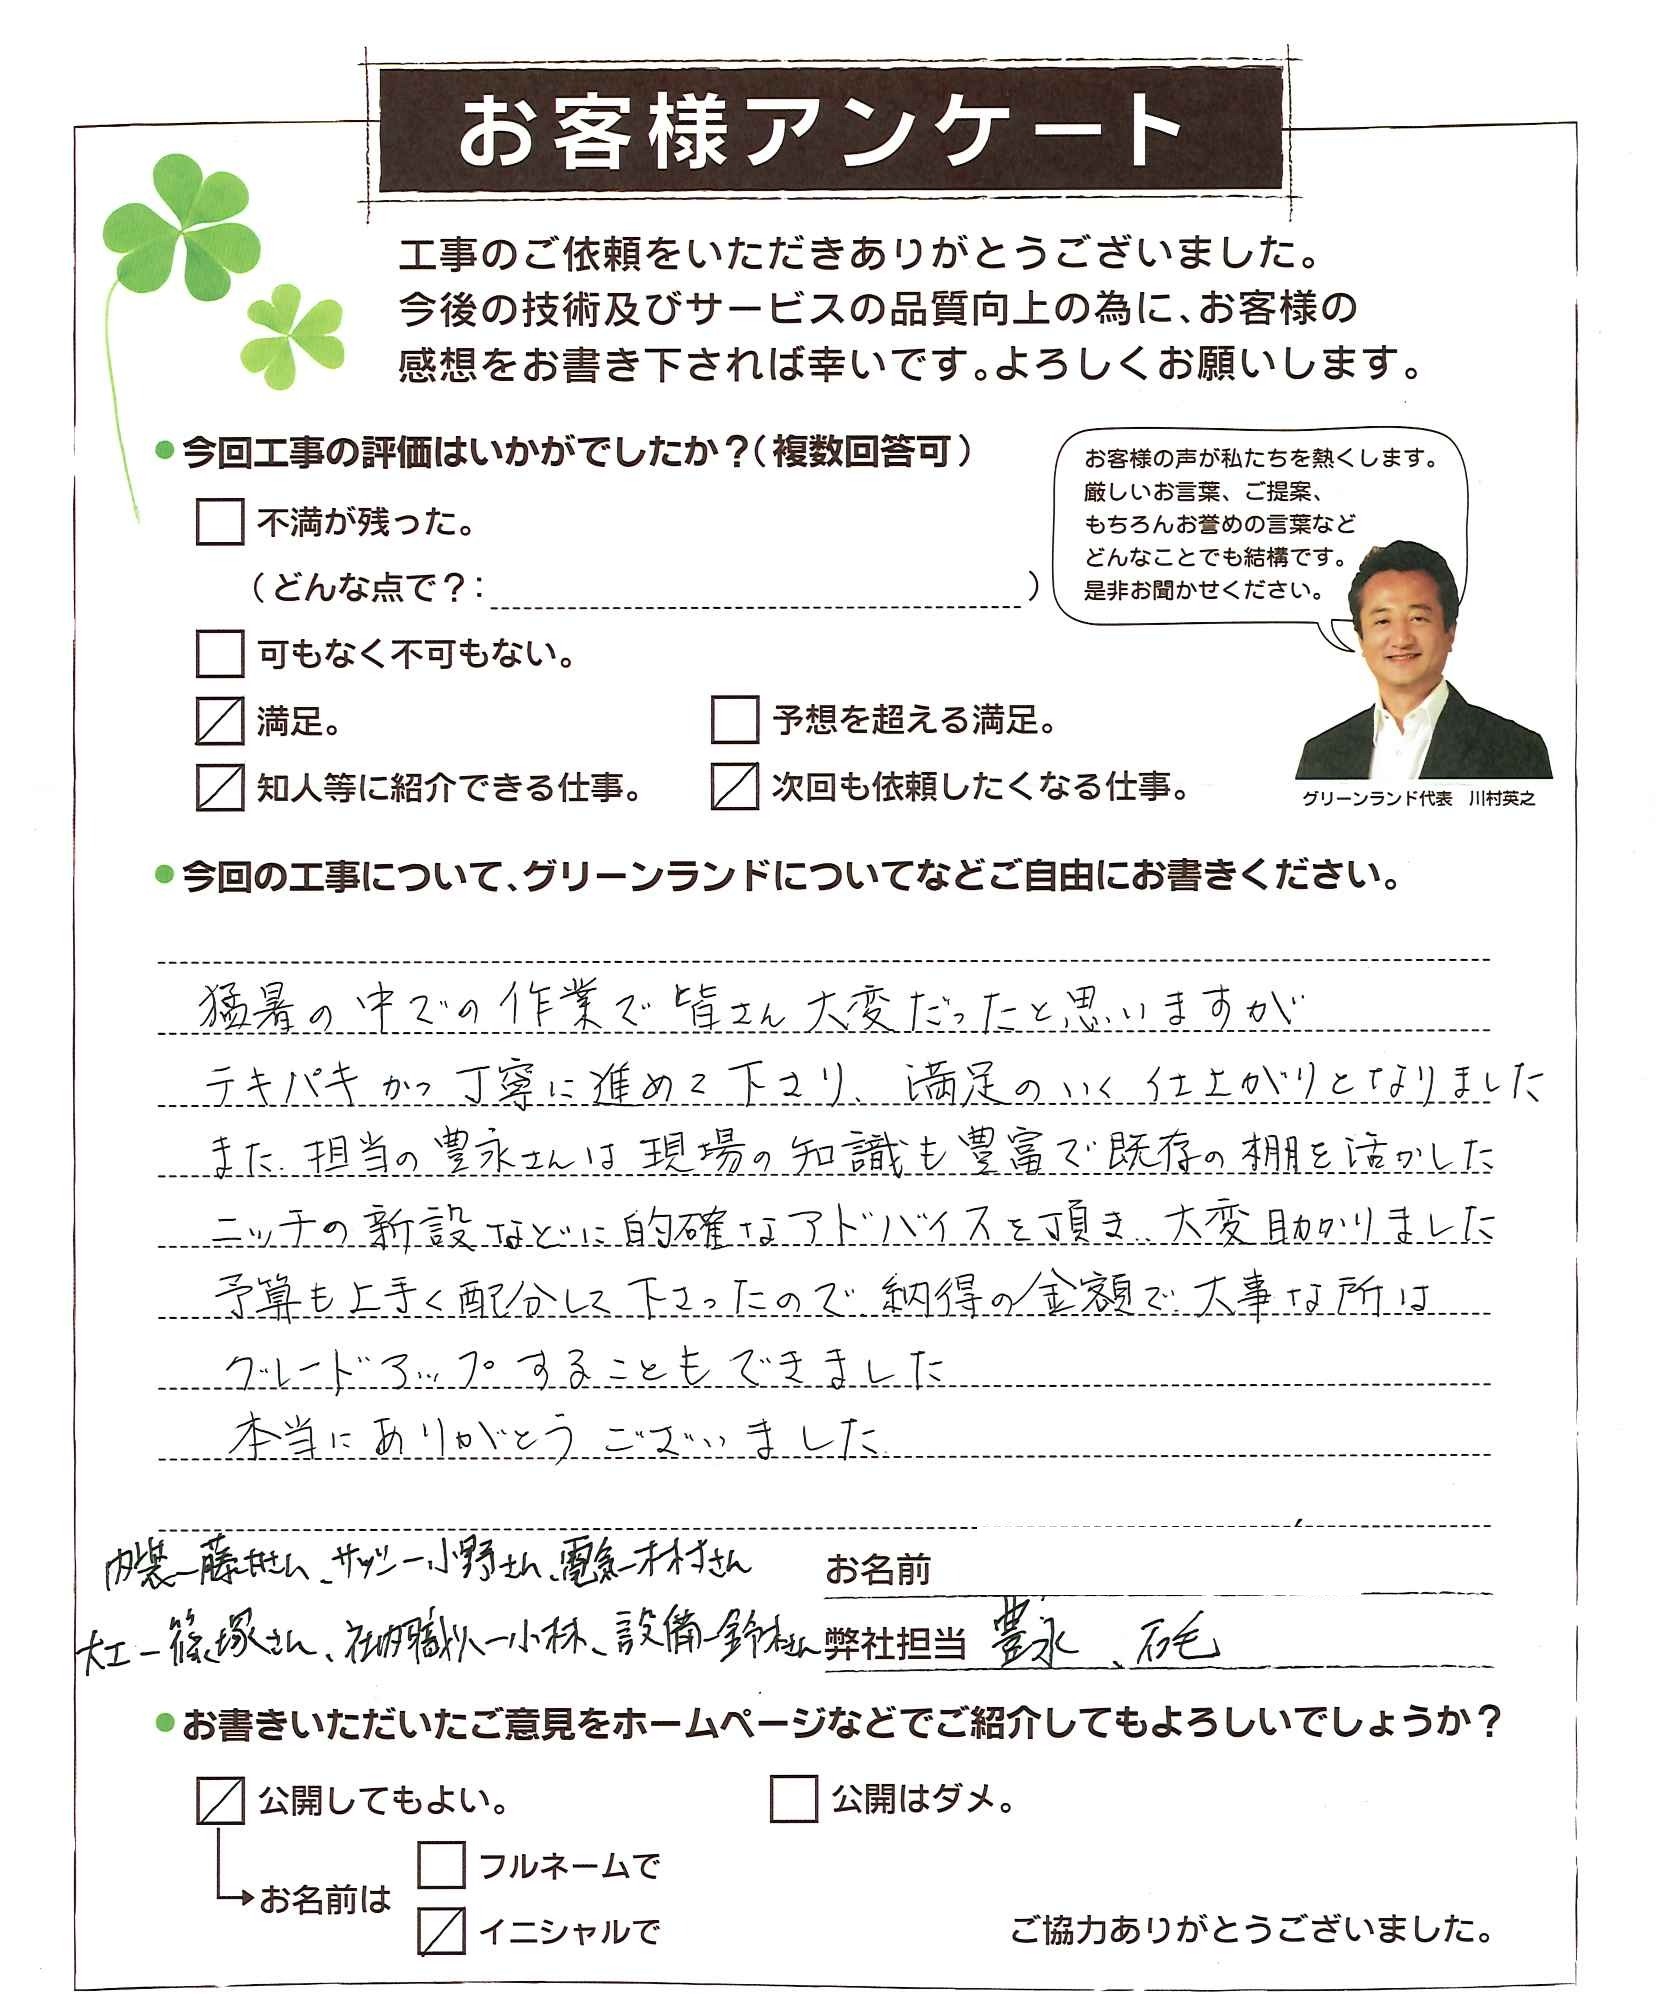 お客様アンケート
工事のご依頼をいただきありがとうございました。
今後の技術及びサービスの品質向上の為に、お客様の
感想をお書き下されば幸いです。よろしくお願いします。
●今回工事の評価はいかがでしたか?(複数回答可)
不満が残った。
(どんな点で?: )
可もなく不可もない。
満足。
予想を超える満足。
知人等に紹介できる仕事。
次回も依頼したくなる仕事。
お客様の声が私たちを熱くします。
厳しいお言葉、ご提案、
もちろんお誉めの言葉など
どんなことでも結構です。
是非お聞かせください。
グリーンランド代表 川村英之
●今回の工事について、グリーンランドについてなどご自由にお書きください。
猛暑の中での作業で皆さん大変だったと思いますが
テキパキかつ丁寧に進めて下さり、満足のいく仕上がりとなりました
また、担当の豊永さんは現場の知識も豊富で既存の棚を活かした
ニッチの新設などに的確なアドバイスを頂き、大変助かりました
予算も上手く配分して下さったので、納得の金額で大事な所は
グレードアップすることもできました
本当にありがとうございました
内装ー藤井さん、サッシー小野さん、電気ー木村さん
大工ー篠塚さん、社内職人ー小林、設備ー鈴木さん
お名前
弊社担当 豊永、石毛
●お書きいただいたご意見をホームページなどでご紹介してもよろしいでしょうか?
公開してもよい。
公開はダメ。
お名前は
フルネームで
イニシャルで
ご協力ありがとうございました。